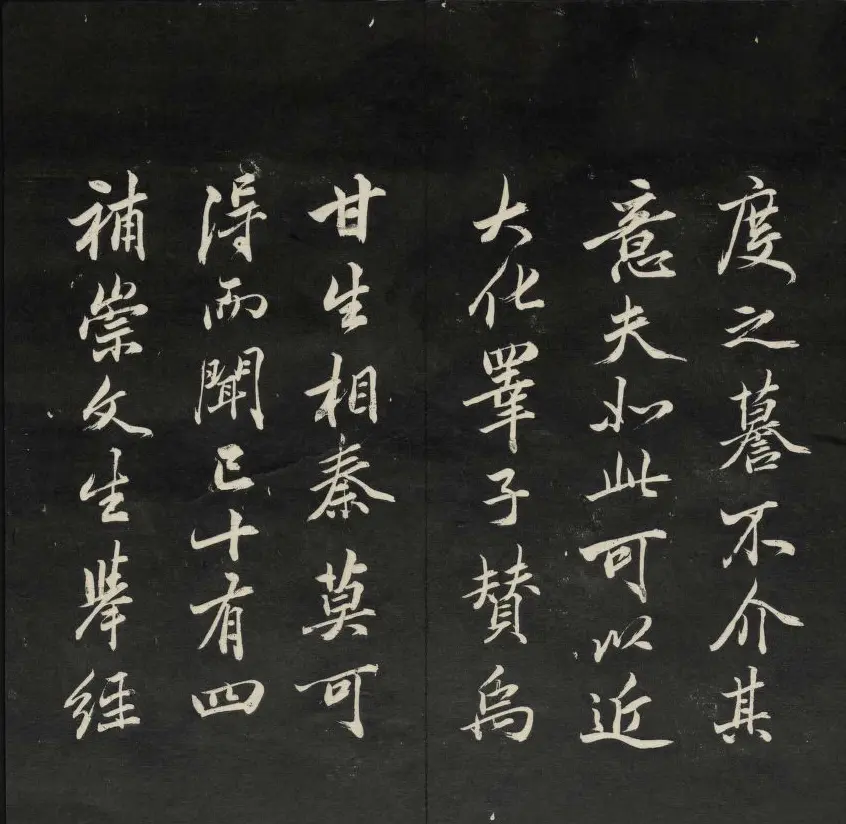 度之謩不介其
意夫如此可以近
大化睪子賛禹
甘生相秦莫可
得而聞已十有四
補崇文生舉經